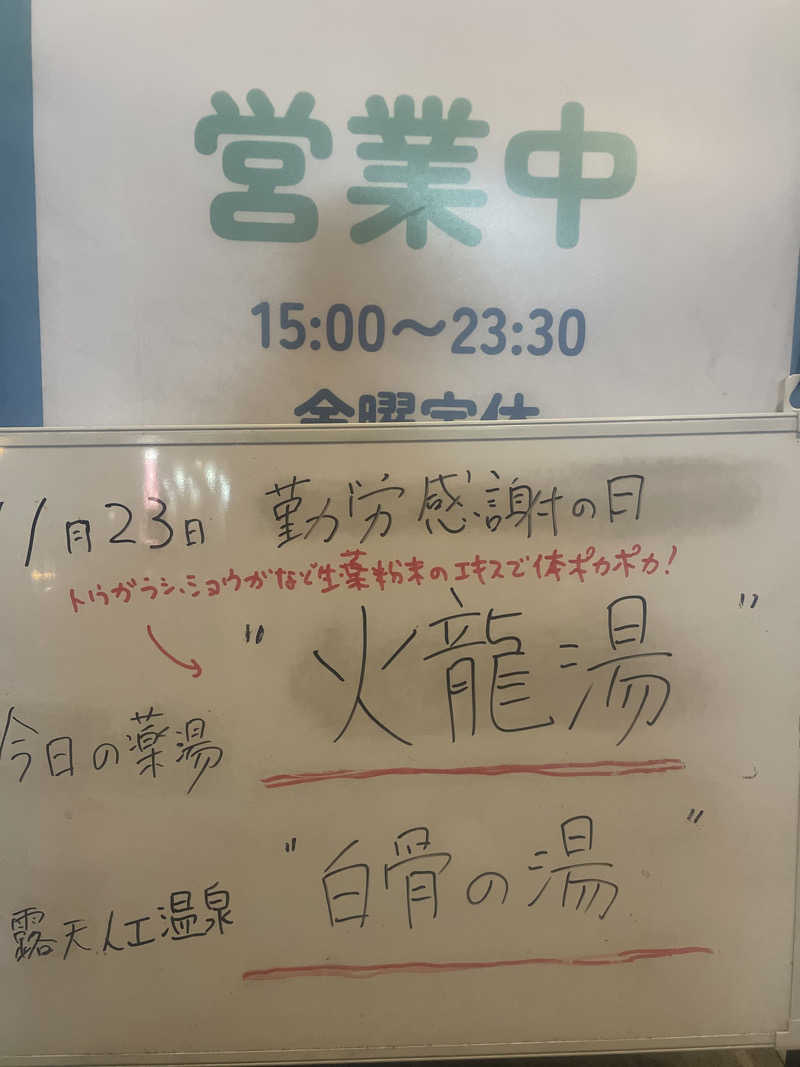 営業中
15:00～23:30
金曜定休
11月23日 勤労感謝の日
トウガラシ、ショウガなど生薬粉末のエキスで体ポカポカ!
今日の薬湯 "火龍湯"
露天人工温泉 "白骨の湯"